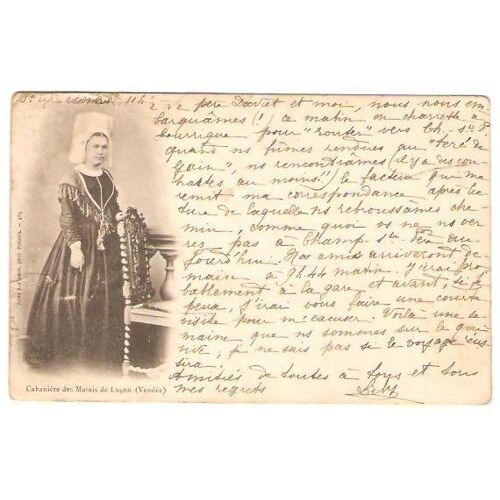 11h ½
le père Daviet et moi, nous nous em
barquâmes (!) ce matin en charrette à
bourrique pour "router" vers Ch. Ste
quand ns fûmes rendues au "Féré de
Gain", ns rencontrâmes (il y a des con
trastes au moins!!) le facteur qui me
remit ma correspondance après lec
ture de laquelle ns rebroussâmes che
min, comme quoi vs ne ns ver
rez pas à Champ-Ste Père au
jourd'hui. Nos amis arriveront de
main à 9h.44 matin. J'irai pro
bablement à la gare et avant, si je
peux, j'irai vous faire une courte
visite pour m'excuser. Voilà une se
maine que ns sommes sur le qui
vive, je ne sais pas si le voyage réus
sira.
Amitiés de toutes à tous et tous
mes regrets
Cabanière des Marais de Luçon (Vendée)